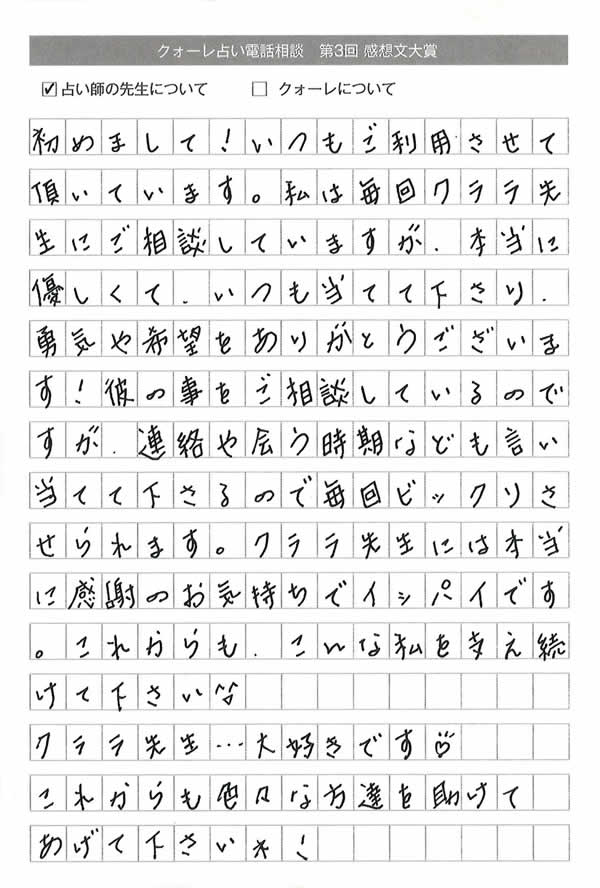 クォーレ占い電話相談　第3回 感想文大賞
☑ 占い師の先生について　□ クォーレについて
初めまして！いつもご利用させて
頂いています。私は毎回クララ先
生にご相談していますが、本当に
優しくて、いつも当てて下さり、
勇気や希望をありがとうございま
す！彼の事をご相談しているので
すが、連絡や会う時期なども言い
当てて下さるので毎回ビックリさ
せられます。クララ先生には本当
に感謝のお気持ちでイッパイです
。これからも、こんな私を支え続
けて下さい^^
クララ先生…大好きです♡
これからも色々な方達を助けて
あげて下さいネ！